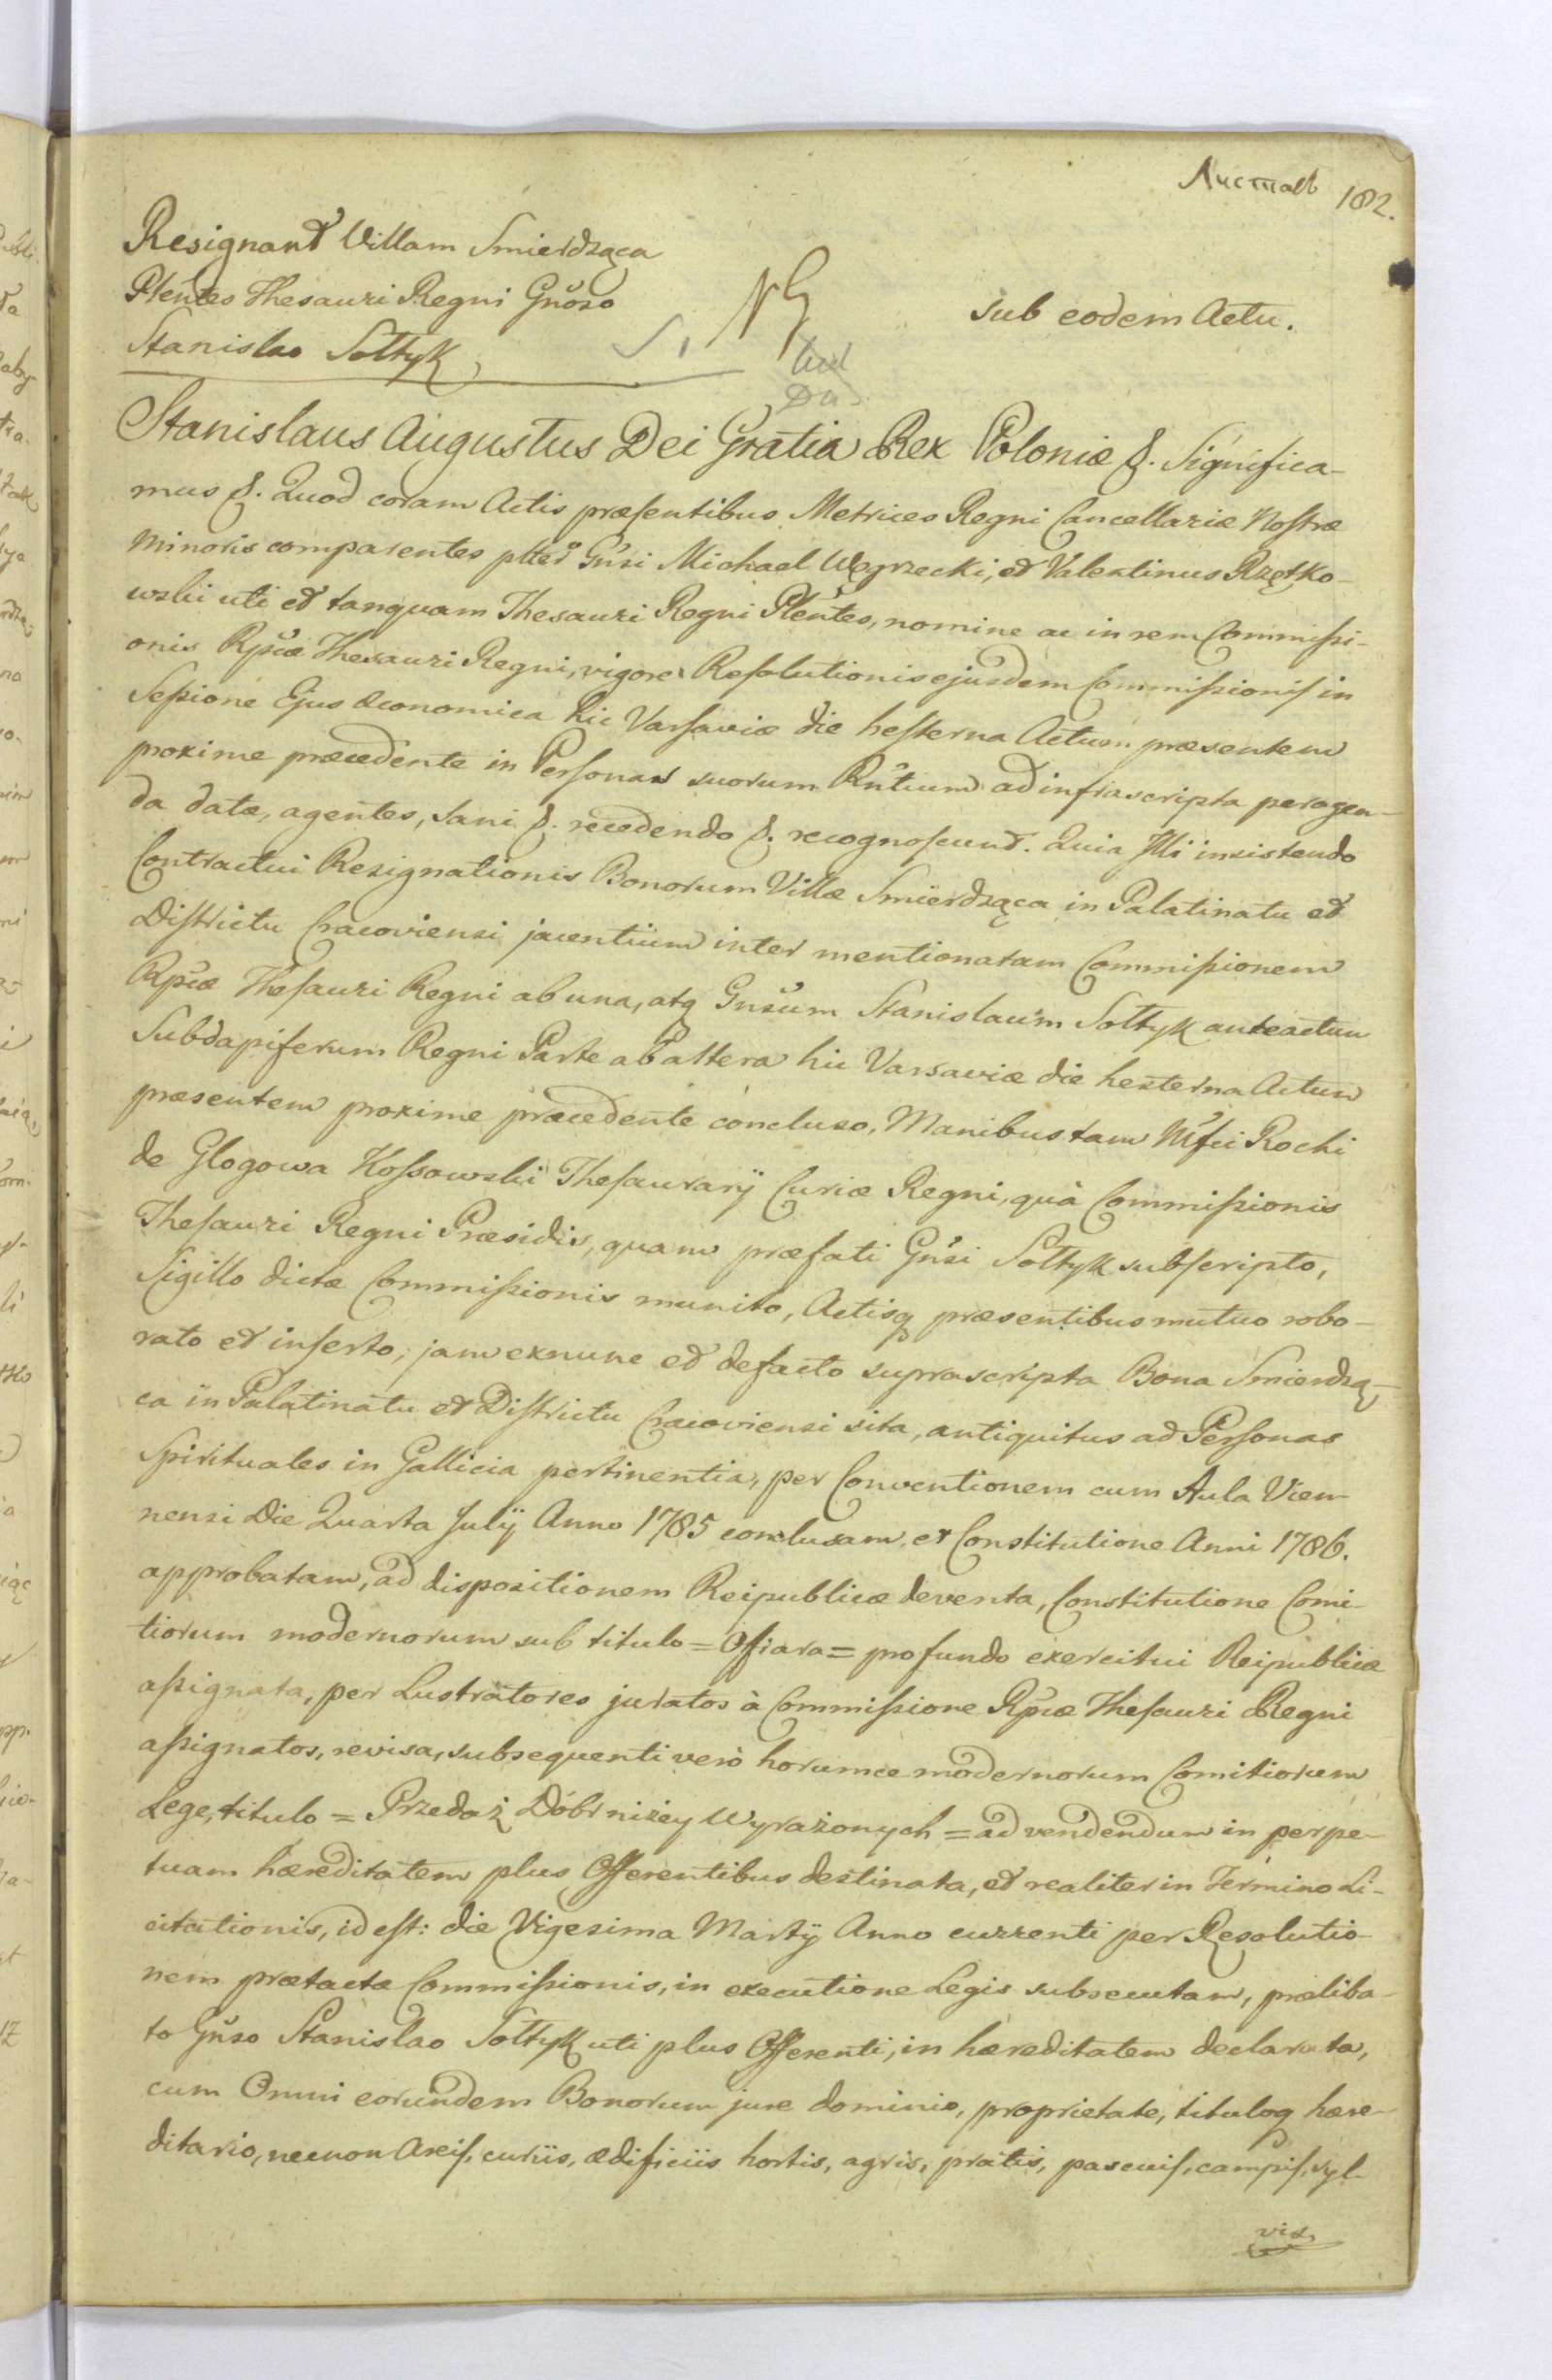 Листовъ 182.
Resignant Villam Smierdząca
Plentes Thesauri Regni Gnoso
Stanislao Sołtyk
sub eodem Actu.
Stanislaus Augustus Dei Gratia Rex Poloniæ &. Significa-
mus &. Quod coram Actis præsentibus Metrices Regni Cancellariæ Nostræ
Minoris comparentes plter Gnsi Michael Węgrzecki, et Valentinus Rzętko-
wski uti et tanquam Thesauri Regni Plentes, nomine ac in rem Commissi-
onis Rpcæ Thesauri Regni, vigore Resolutionis ejusdem Commissionis in
Sessione Ejus Œconomica hic Varsaviæ die hesterna Actum præsentem
proxime præcedente in Personas suorum Rntium ad infrascripta peragen-
da datæ, agentes, sani &. recedendo &. recognoscunt. Quia Illi insistendo
Contractui Resignationis Bonorum Villæ Smierdząca in Palatinatu et
Districtu Cracoviensi jacentium inter mentionatam Commissionem
Rpcæ Thesauri Regni ab una, atq Gnsum Stanislaum Sołtyk anteactum
Subdapiferum Regni Parte ab altera hic Varsaviæ die hesterna Actum
præsentem proxime præcedente concluso, Manibus tam Mfci Rochi
de Glogowa Kossowski Thesaurarÿ Curiæ Regni, quà Commissionis
Thesauri Regni Præsidis, quam præfati Gnsi Sołtyk subscripto,
Sigillo dictæ Commissionis munito, Actisq præsentibus mutuo robo-
rato et inserto; jam exnunc et defacto suprascripta Bona Smierdzą-
ca in Palatinatu et Districtu Cracoviensi sita, antiquitus ad Personas
Spirituales in Gallicia pertinentia, per Conventionem cum Aula Vien-
nensi Die Quarta Julÿ Anno 1785 conclusam, et Constitutione Anni 1786.
approbatam, ad dispositionem Reipublicæ deventa, Constitutione Comi-
tiorum modernorum sub titulo = Ofiara = pro fundo exercitui Reipublicæ
assignata, per Lustratores juratos à Commissione Rpcæ Thesauri Regni
assignatos, revisa, subsequenti verò horumce modernorum Comitiorum
Lege, titulo = Przedaż Dóbr niżey Wyrażonych = ad vendendum in perpe-
tuam hæreditatem plus Offerentibus destinata, et realiter in Termino Li-
citationis, id est: die Vigesima Martÿ Anno currenti per Resolutio-
nem prætactæ Commissionis, in executione Legis subsecutam, præliba-
to Gnso Stanislao Sołtyk uti plus Offerenti, in hæreditatem declarata,
cum Omni eorundem Bonorum jure dominio, proprietate, tituloq hære-
ditario, necnon Areis, curiis, ædificiis hortis, agris, pratis, pascuis, campis, syl-
vis,